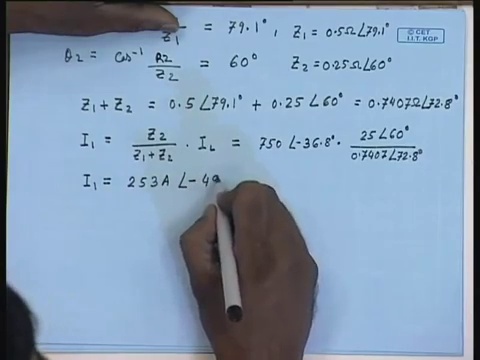 Z₁ = 79.1°, Z₁ = 0.5Ω∠79.1°
© CET
I.I.T. KGP
θ₂ = cos⁻¹ R₂/Z₂ = 60° Z₂ = 0.25Ω∠60°
Z₁+Z₂ = 0.5∠79.1° + 0.25∠60° = 0.7407Ω∠72.8°
I₁ = Z₂/(Z₁+Z₂) · I_L = 750∠-36.8° · 25∠60°/0.7407∠72.8°
I₁ = 253A ∠-4